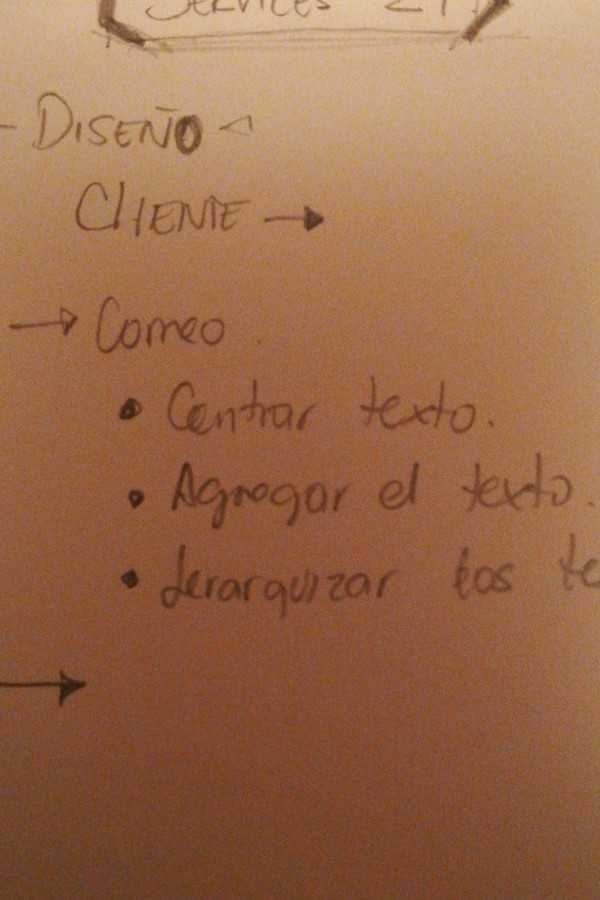 SERVICES
- DISEÑO <
CLIENTE →
→ Correo
• Centrar texto.
• Agregar el texto.
• Jerarquizar los